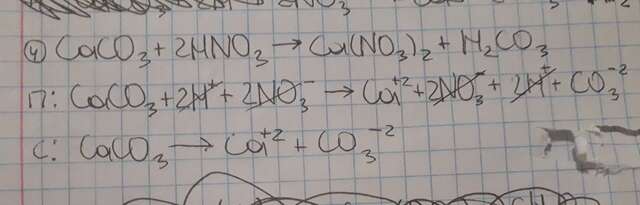 4) CaCO₃ + 2HNO₃ → Ca(NO₃)₂ + H₂CO₃
П: CaCO₃ + 2H⁺ + 2NO₃⁻ → Ca⁺² + 2NO₃⁻ + 2H⁺ + CO₃⁻²
С: CaCO₃ → Ca⁺² + CO₃⁻²